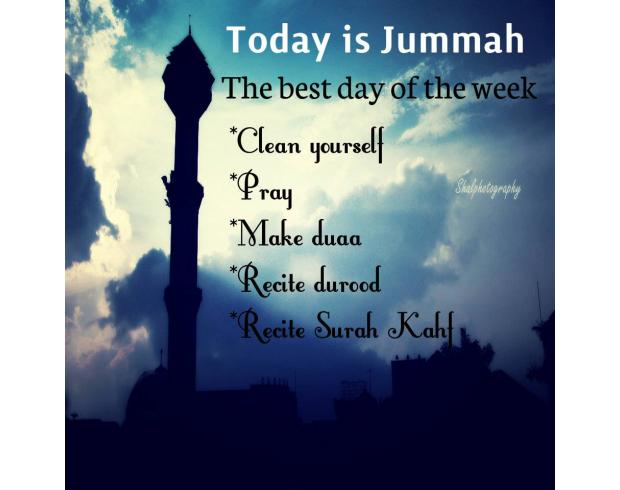 Today is Jummah
The best day of the week
*Clean yourself
*Pray
*Make duaa
*Recite durood
*Recite Surah Kahf
Shalphotography